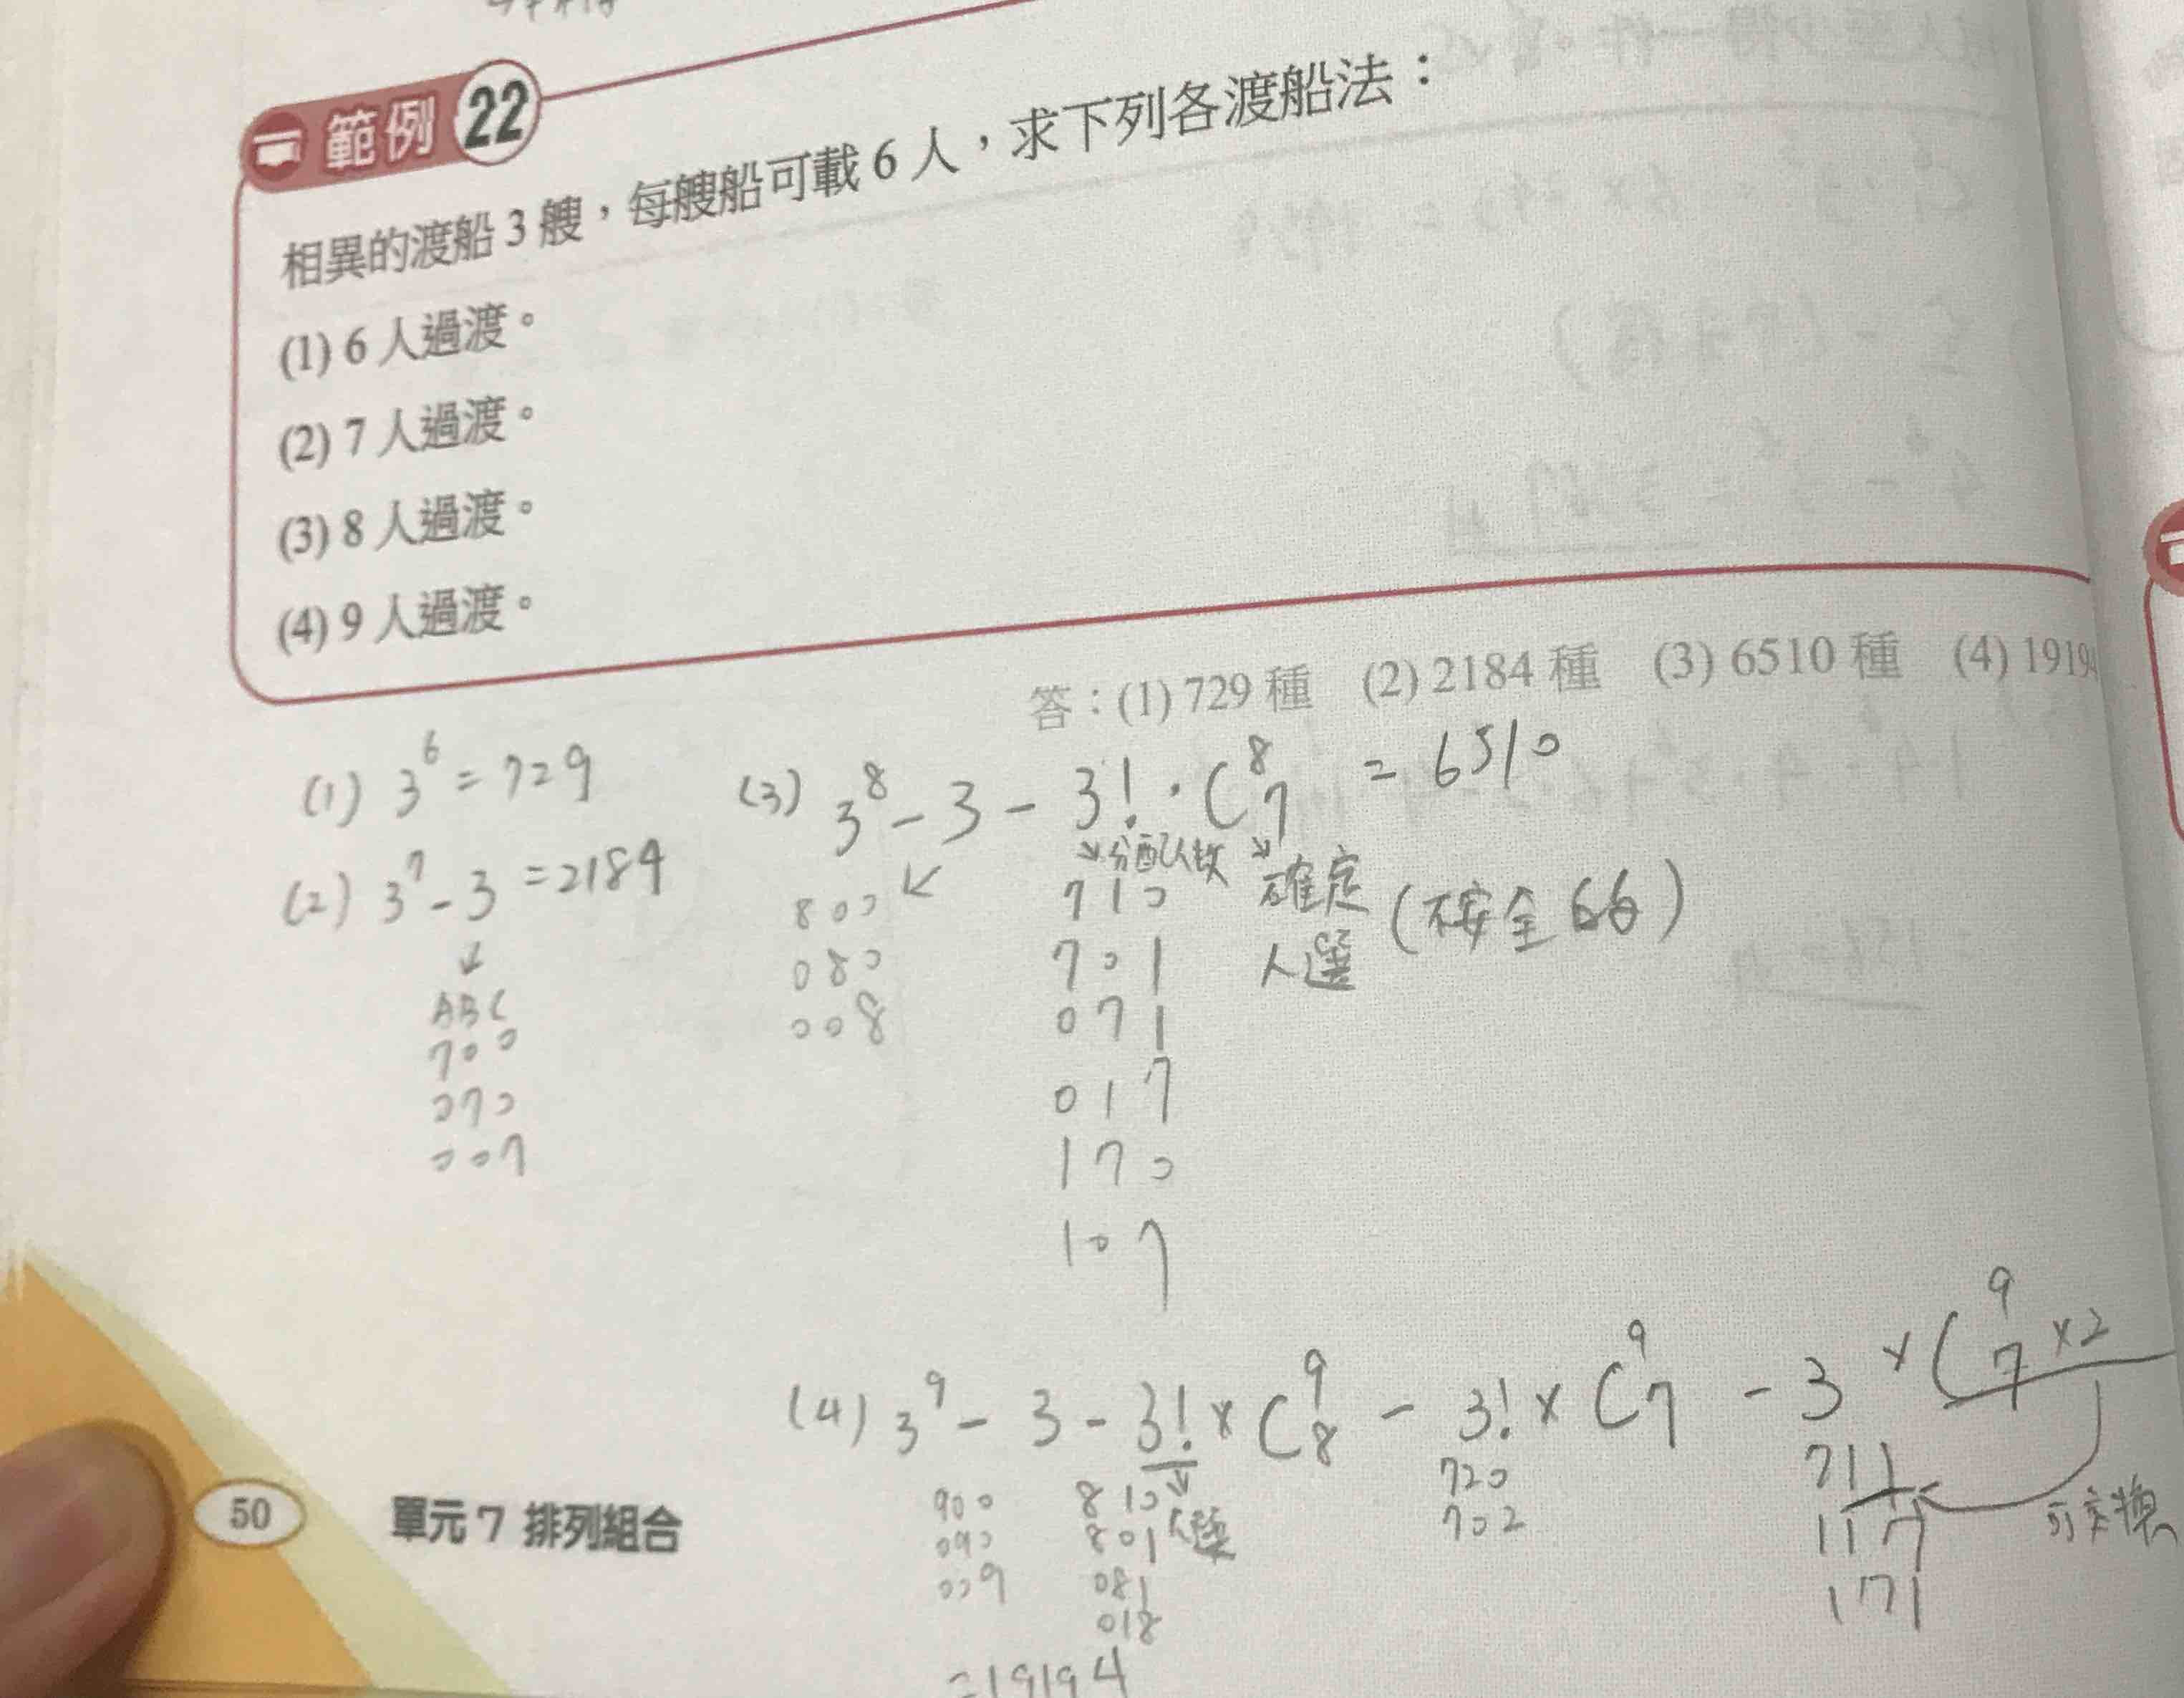 範例 22
相異的渡船 3 艘，每艘船可載 6 人，求下列各渡船法：
(1) 6 人過渡。
(2) 7 人過渡。
(3) 8 人過渡。
(4) 9 人過渡。
答：(1) 729 種 (2) 2184 種 (3) 6510 種 (4) 19194
(1) 3⁶ = 729
(2) 3⁷ - 3 = 2184
ABC
700
070
007
(3) 3⁸ - 3 - 3! · C⁸₇ = 6510
分配人數
確定人選 (不安全 66)
800
080
008
710
701
071
017
170
107
(4) 3⁹ - 3 - 3! × C⁹₈ - 3! × C⁹₇ - 3 × C⁹₇ × 2
900
090
009
810
801
081
018
720
702
711
117
171
可交換
= 19194
50 單元 7 排列組合